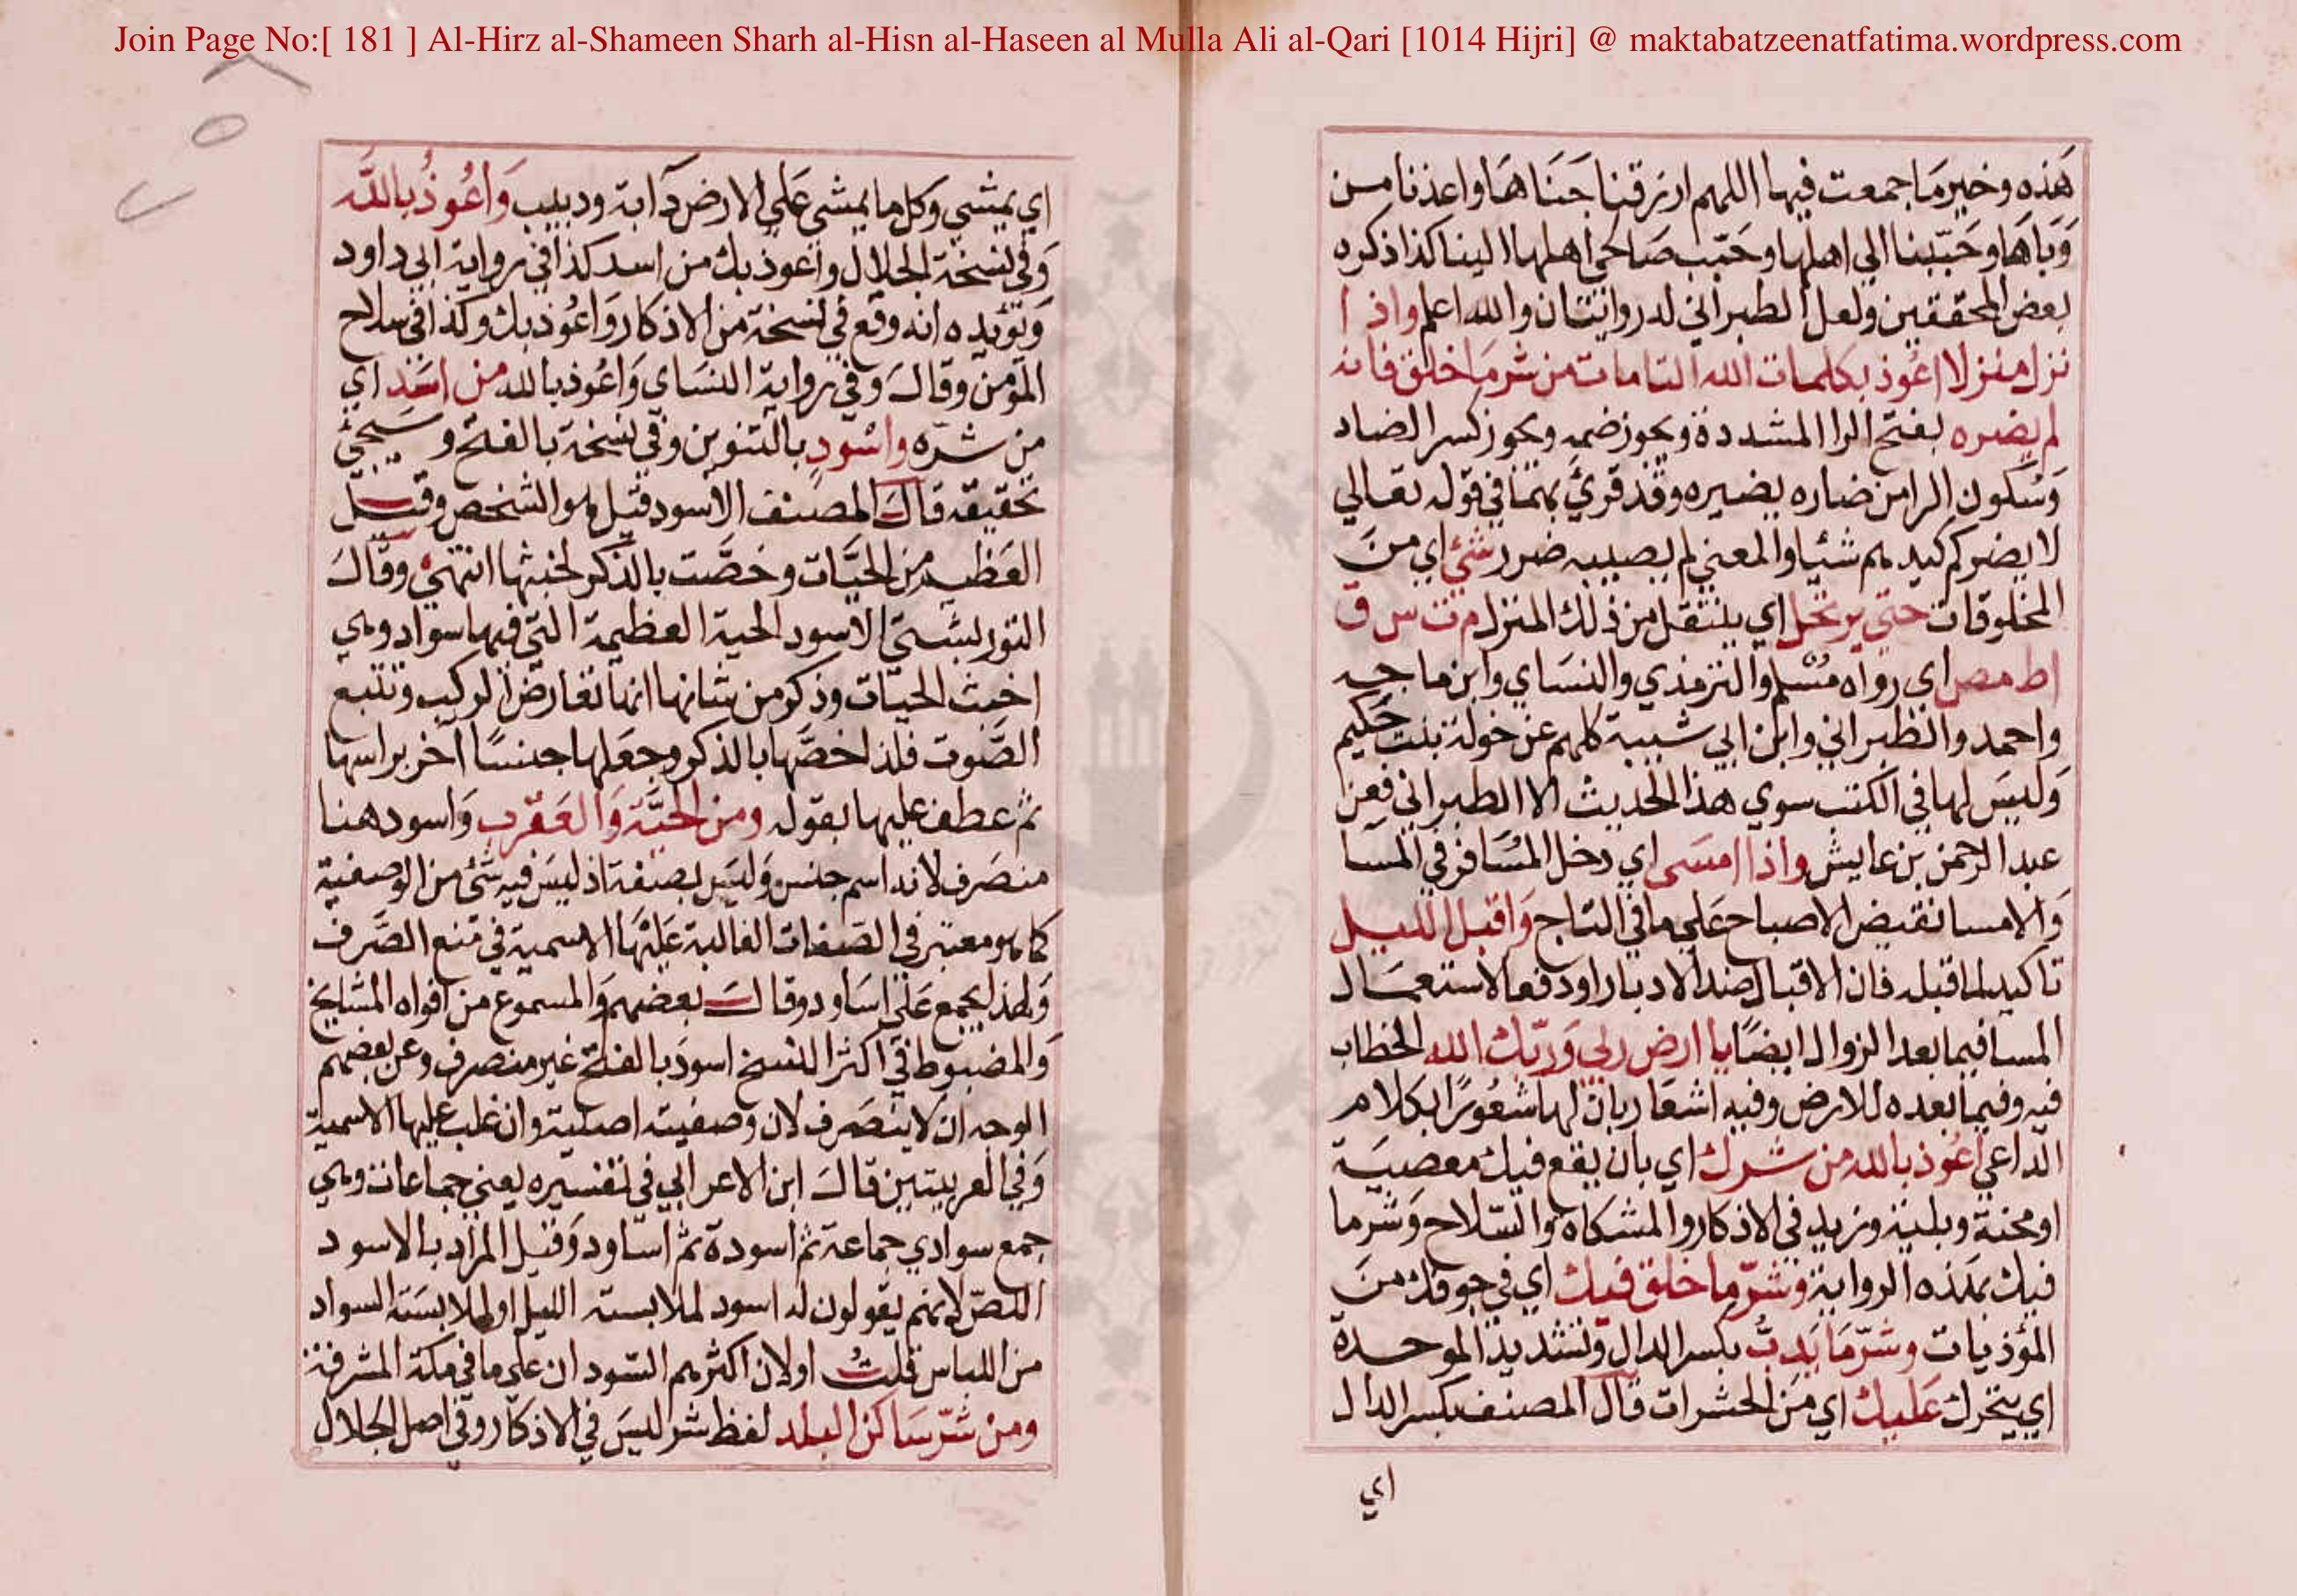 Join Page No:[ 181 ] Al-Hirz al-Shameen Sharh al-Hisn al-Haseen al Mulla Ali al-Qari [1014 Hijri] @ maktabatzeenatfatima.wordpress.com
هَذه وخير مَا جمعت فيها اللهم ارزقنا جَنَاهَا واعذنا من
وَبَاهَا وحَبّبنا الي اهلها وحَبّب صَالحي اهلها الينا كذا ذكره
بعض المحققين ولعل الطبراني له روايتان والله اعلم واذا
نزل منزلا اعُوذ بكلمات الله التامات من شر مَا خلق فانه
لم يضره بفتح الرا المشددة ويجوز ضمه ويجوز كسر الضاد
وَسُكون الرا من ضاره يضيره وقد قرئ بهما في قوله تعالي
لا يضركم كيدهم شئيا والمعني لم يصيبه ضرر شئ اي منَ
المخلوقات حتي يرتحل اي ينتقل من ذلك المنزل م ت س ق
اط مص اي رواه مُسْلم والترمذي والنسَاي وابن ماجه
واحمد والطبراني وابن ابي شيبة كلهم عن خولة بنت حَكيم
وَليسَ لها في الكتب سوي هذا الحديث الا الطبراني فعن
عبد الرحمن بن عايش واذا امسَى اي دخل المسَافر في المسَا
وَالامسا نقيض الاصباح عَلي ما في التاج وَاقبل الليل
تاكيد لما قبله فان الاقبال ضد الادبار او دفعا لاستعمَال
المسا فيما بعد الزوال ايضًا يا ارض ربي وَربّك الله الخطاب
فيه وفيما بعده للارض وفيه اشعَار بان لهَا شعُورًا بكلام
الداعي اعُوذ بالله من شرك اي بان يقع فيك معصيَة
او محنة وبلية وزيد في الاذكار والمشكاة والسّلاح وَشر ما
فيك بهَذه الرواية وشرّ ما خلق فيك اي في جوفك منَ
المؤذيات وشرّ مَا يَدبُّ بكسر الدال وتشديد الموحدة
اي يتحرك عَليك اي منَ الحشرات قال المصنف بكسر الدال
اي
اي يمشي وكل ما يمشي عَلي الارض دآبة ودبيب وَاعُوذُ باللَّه
وَفي نسخة الجلال وَاعوذ بك من اسد كذا في رواية ابي داود
وَيؤيده انه وقع في نسخة من الاذكار وَاعُوذ بك وكذا في سلاح
المؤمن وقالَ وفي رواية النسَاي وَاعُوذ بالله من اسَد اي
من شرّه واسْودٍ بالتنوين وفي نسخة بالفتح وسَيجيئ
تحقيقه قالَ المصنف الاسود قيل هو الشخص وقيل
العَظيم من الحيَّات وخصَّت بالذكر لخبثها انتهي وقالَ
التوربشتي الاسود الحية العظيمة التي فيها سواد وهي
اخبث الحيَّات وذكر من شانها انها تعارض الركب وتتبع
الصَّوت فلذا خصَّها بالذكر وجعَلها جنسًا آخر براسها
ثم عطف عليها بقوله ومن الحيَّة وَالعَقرب وَاسود هنا
منصَرف لانه اسم جنس وَليسَ بصفة اذ ليسَ فيه شئ من الوصفية
كما هو معتبر في الصفات الغالبة عَليْهَا الاسمية في منع الصَّرف
وَلهذا يجمع عَلي اسَاود وقالَ بعضهم وَالمسموع من افواه المشايخ
وَالمضبوط في اكثر النسخ اسودَ بالفتح غير منصرف وعن بعضهم
الوجه ان لا ينصَرف لان وصفيته اصلية وان غلب عليها الاسمية
وَفي الغريبين قالَ ابن الاعرابي في تفسيره يعني جماعات وهي
جمع سواد اي جماعة ثم اسودة ثم اساود وَقيل المراد بالاسود
اللصّ لانهم يقولون له اسود لملابسته الليل او لملابسَته السواد
من اللباس قلتُ اولان اكثرهم السّودان علي ما في مكة المشرفة
ومن شرّ سَاكن البلد لفظ شر ليسَ في الاذكار وفي اصل الجلال